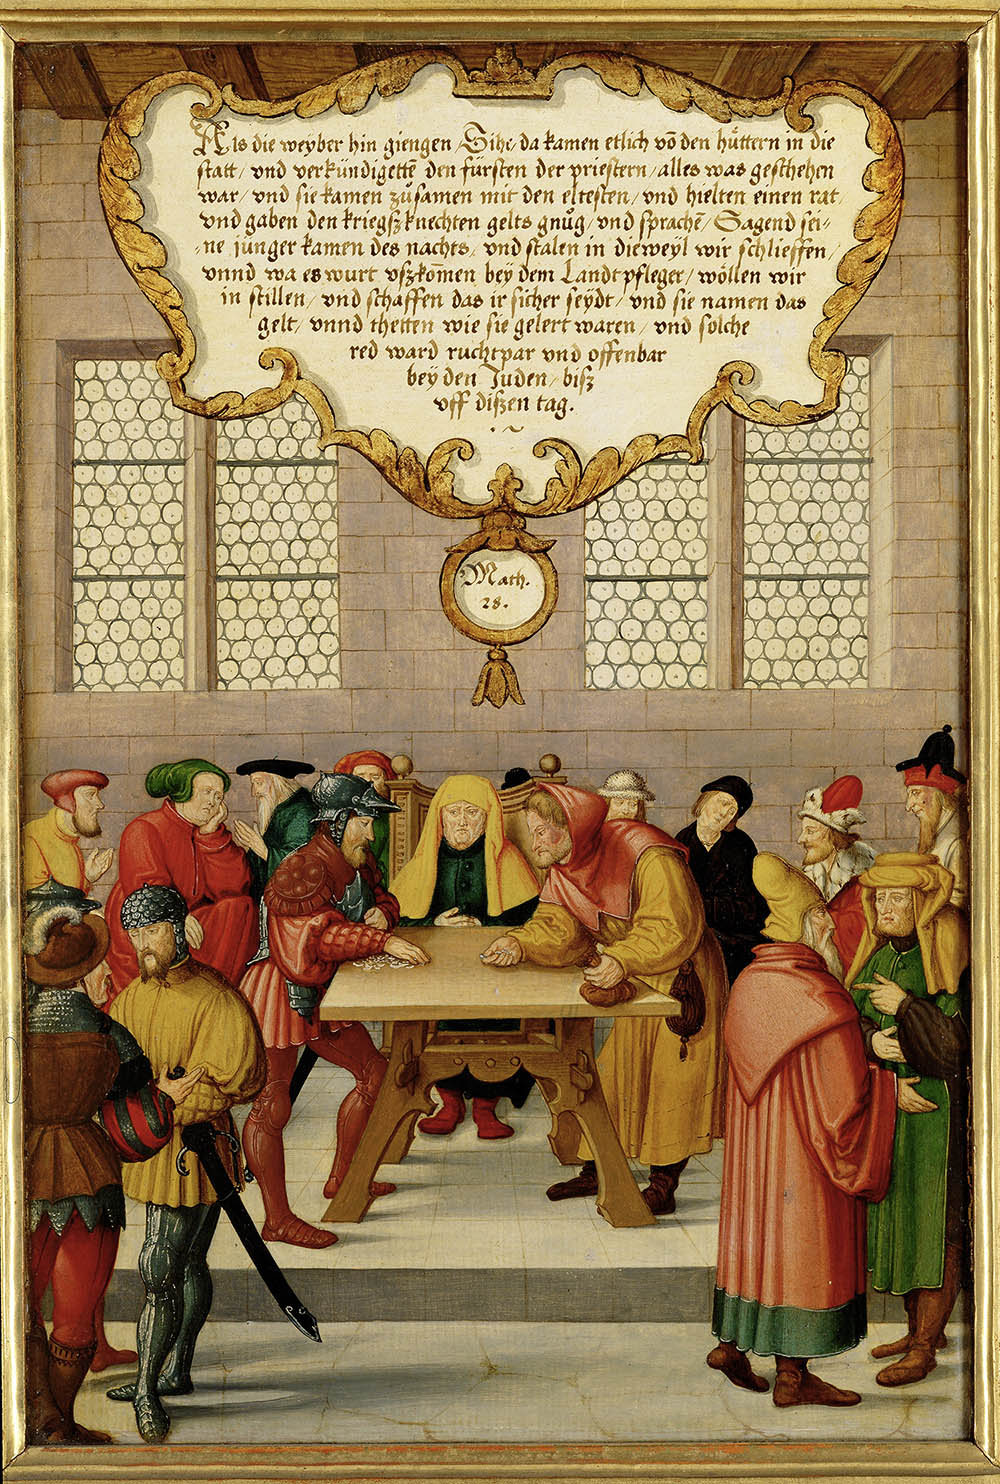 Als die weyber hin giengen / Sihe / da kamen etlich võ den hüttern in die
statt / vnd verkündigettẽ den fürsten der priestern / alles was geschehen
war / vnd sie kamen zůsamen mit den eltesten / vnd hielten einen rat /
vnd gaben den kriegsz knechten gelts gnůg / vnd sprachẽ / Sagend sei-
-ne jünger kamen des nachts / vnd stalen in dieweyl wir schlieffen /
vnnd wa es wurt vszkom̃en bey dem Landtpfleger / wöllen wir
in stillen / vnd schaffen das ir sicher seydt / vnd sie namen das
gelt / vnnd thetten wie sie gelert waren / vnd solche
red ward ruchtpar vnd offenbar
bey den Juden / bisz
vff diszen tag.
Math.
28.